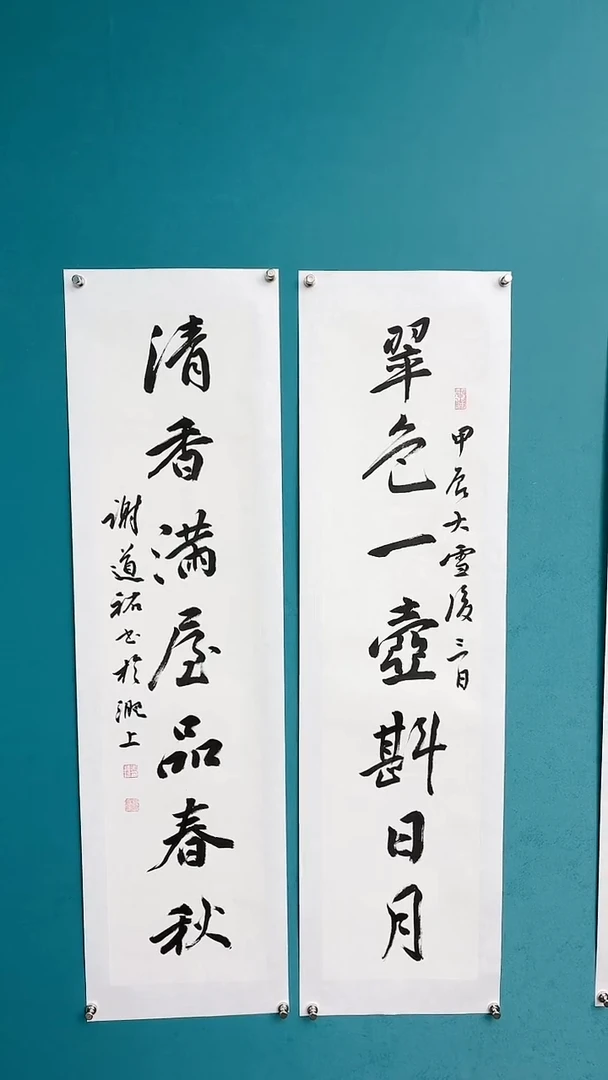 翠色一壺斟日月
甲辰大雪後三日
清香满屋品春秋
谢道祐书於淝上